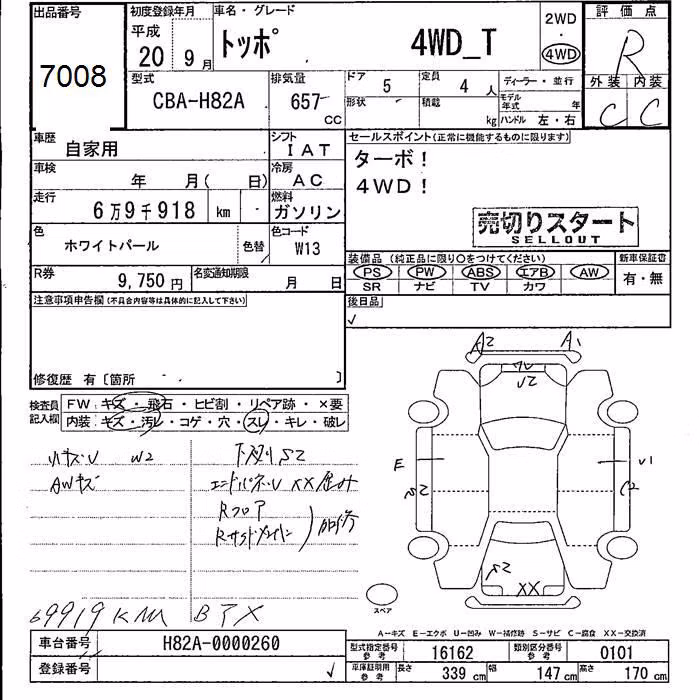 出品番号
7008
初度登録年月
平成
20 9月
車名・グレード
トッポ 4WD_T
2WD
・
4WD
評価点
R
外装 内装
C C
型式
CBA-H82A
排気量
657
CC
ドア
5
定員
4人
形状
積載
kg
ディーラー・並行
モデル年式 年
ハンドル 左・右
車歴
自家用
シフト
IAT
車検
年 月( 日)
冷房
AC
走行
6万9千918 km
燃料
ガソリン
色
ホワイトパール
色替
色コード
W13
R券
9,750円
名変通知期限
月 日
セールスポイント(正常に機能するものに限ります)
ターボ!
4WD!
売切りスタート
SELLOUT
装備品(純正品に限り○をつけてください)
PS PW ABS エアB AW
SR ナビ TV カワ
新車保証書
有・無
後日品
✓
注意事項申告欄(不具合内容等は具体的に記入して下さい)
修復歴 有〔箇所 〕
検査員記入欄
FW:キズ・飛石・ヒビ割・リペア跡・×要
内装:キズ・汚レ・コゲ・穴・スレ・キレ・破レ
小キズU W2
AWキズ
下廻りS2
エンドパネルXX歪み
Rフロア
69919KM
A2 A1
U2
E
S2
U1
S2
XX
スペア
A-キズ E-エクボ U-凹み W-補修跡 S-サビ C-腐食 XX-交換済
車台番号
H82A-0000260
登録番号
✓
型式指定番号
参考
16162
類別区分番号
参考
0101
車庫証明用
参考
長さ 339cm
幅 147cm
高さ 170cm